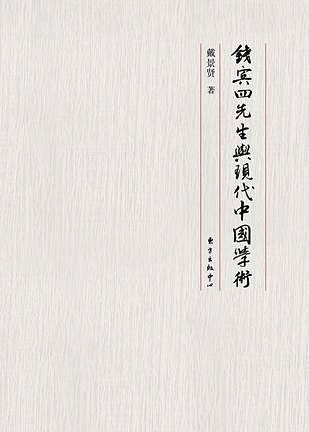 錢宾四先生與現代中國學術
戴景贤 著
东方出版中心